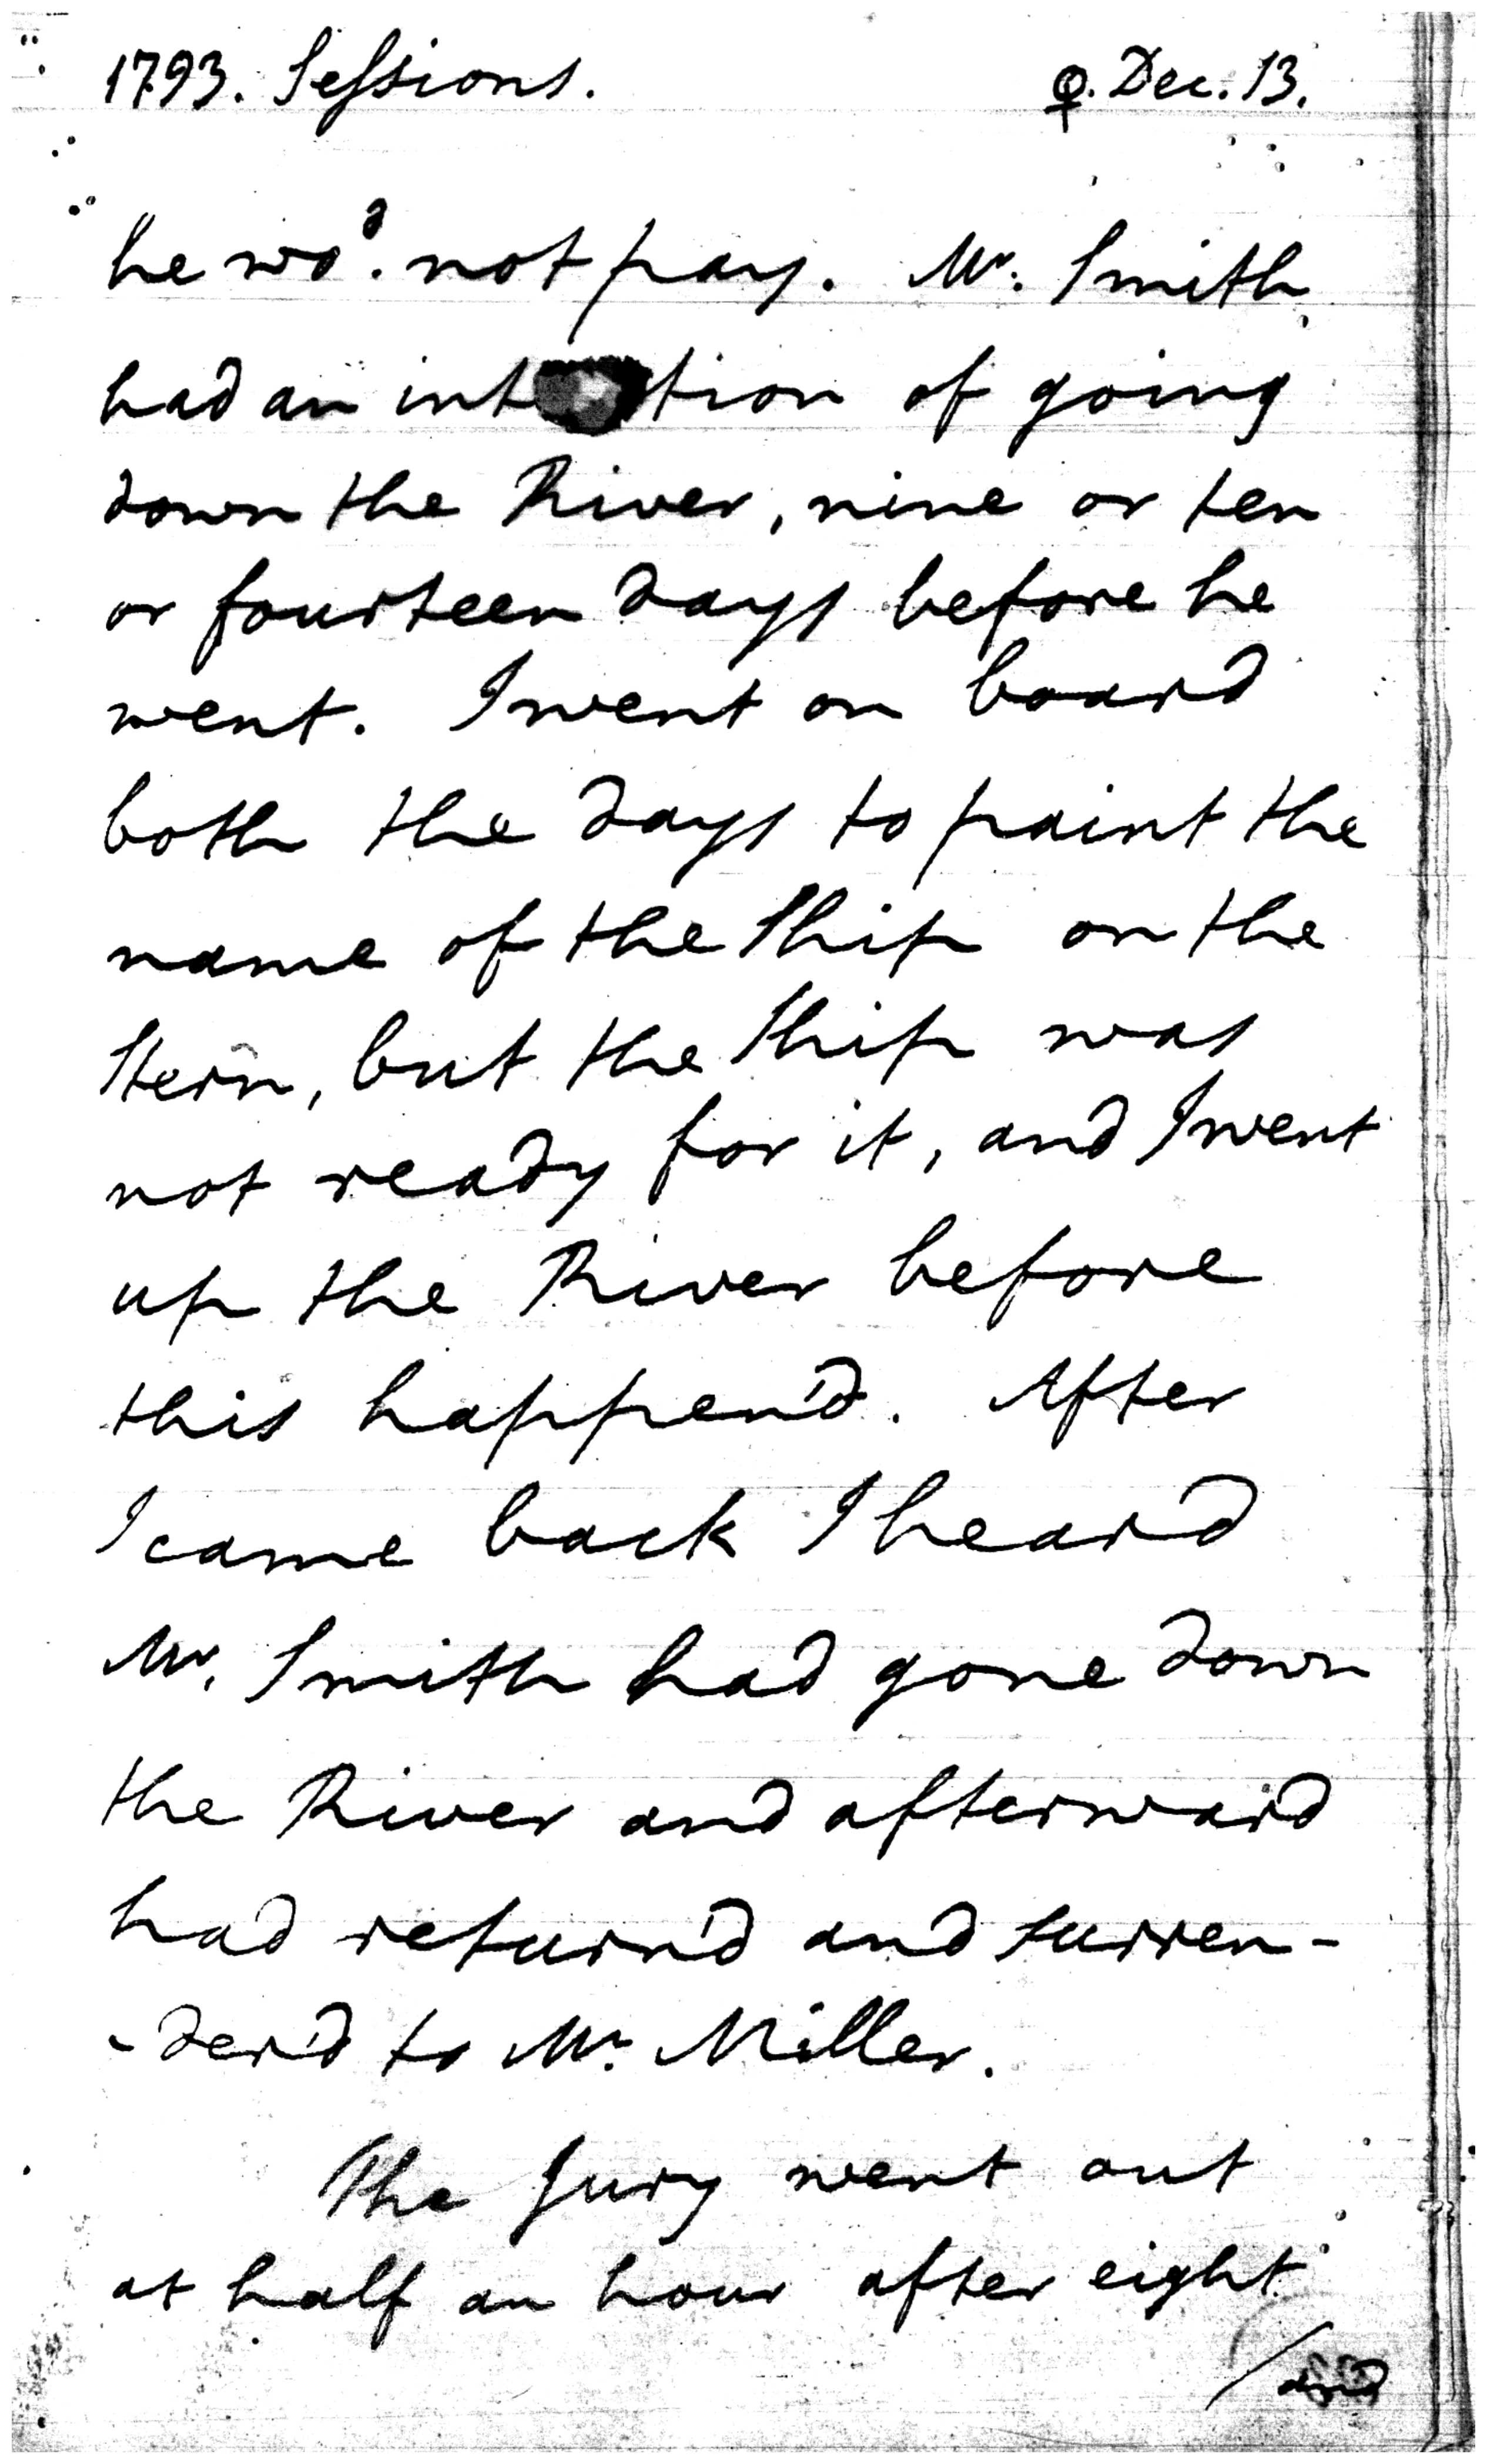 1793. Sessions. ♀. Dec. 13.
he wo.^d not pay. Mr. Smith
had an intention of going
down the River, nine or ten
or fourteen days before he
went. I went on board
both the days to paint the
name of the Ship on the
Stern, but the Ship was
not ready for it, and I went
up the River before
this happen'd. After
I came back I heard
Mr. Smith had gone down
the River and afterward
had return'd and surren-
-der'd to Mr. Miller.
The Jury went out
at half an hour after eight
/and